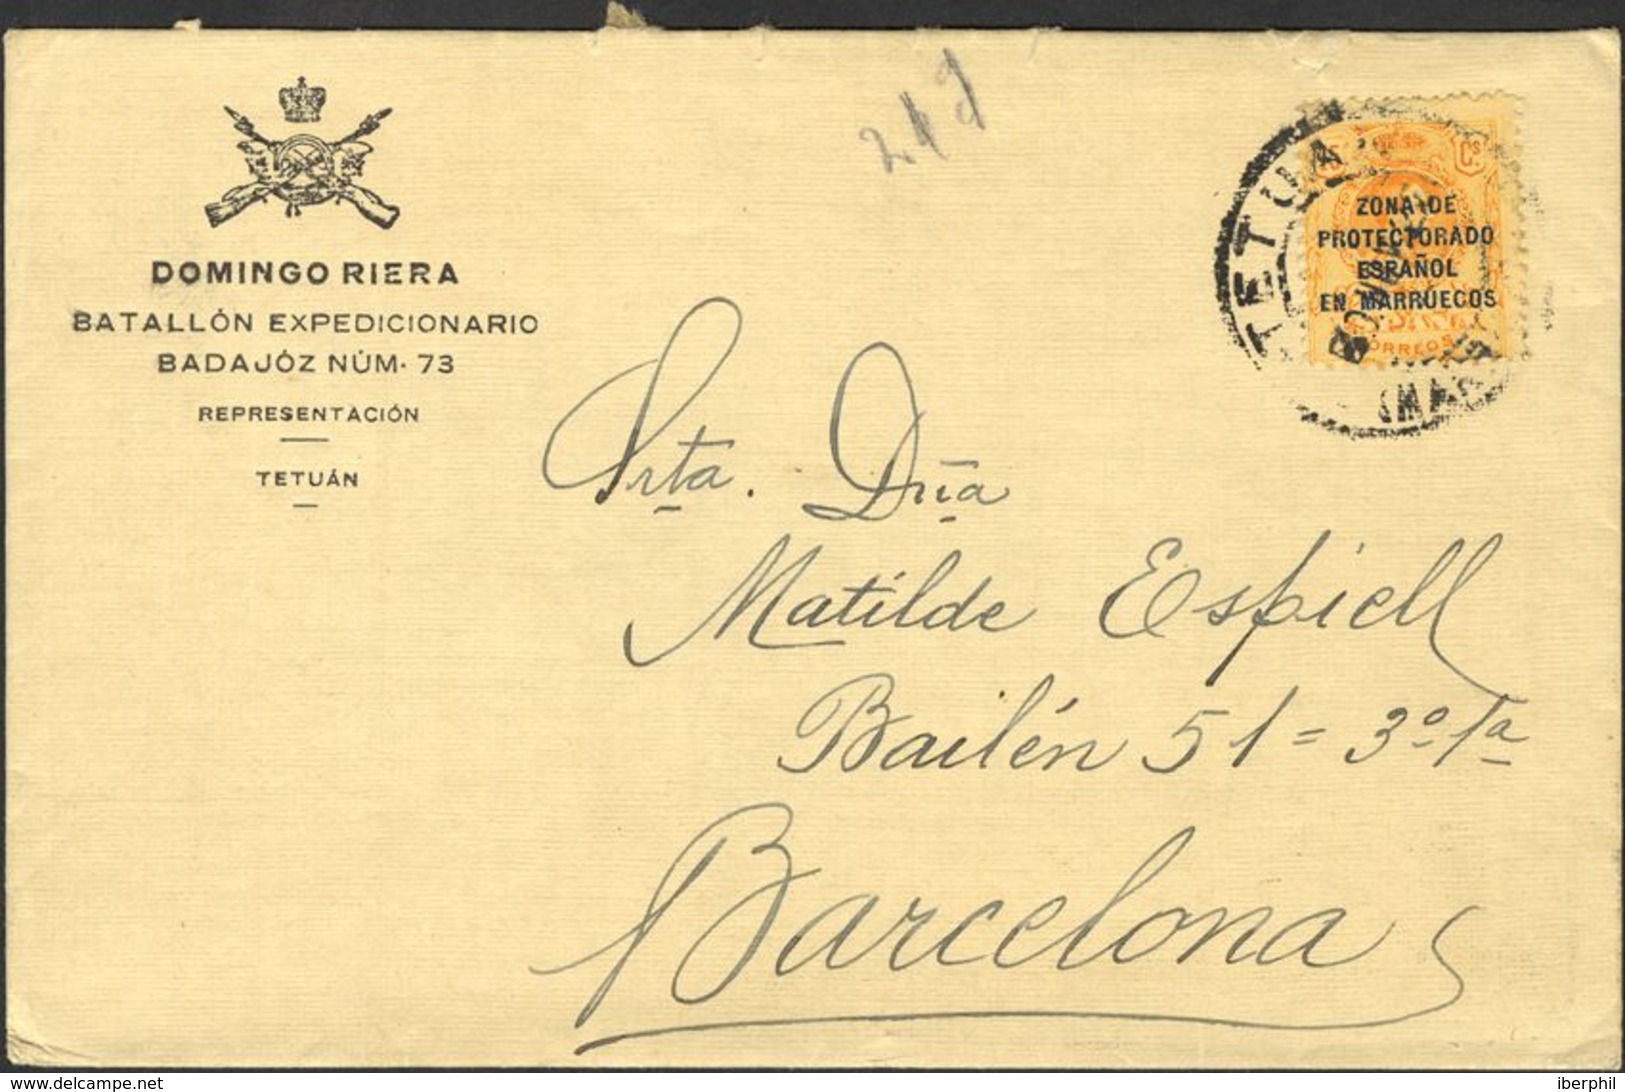 DOMINGO RIERA
BATALLÓN EXPEDICIONARIO
BADAJÓZ NÚM. 73
REPRESENTACIÓN
TETUÁN
TETUA
Cs
ZONA DE
PROTECTORADO
ESPAÑOL
EN MARRUECOS
CORREOS
Srta. Dña
Matilde Espiell
Bailén 51 = 3º 1ª
Barcelona
www.delcampe.net
iberphil